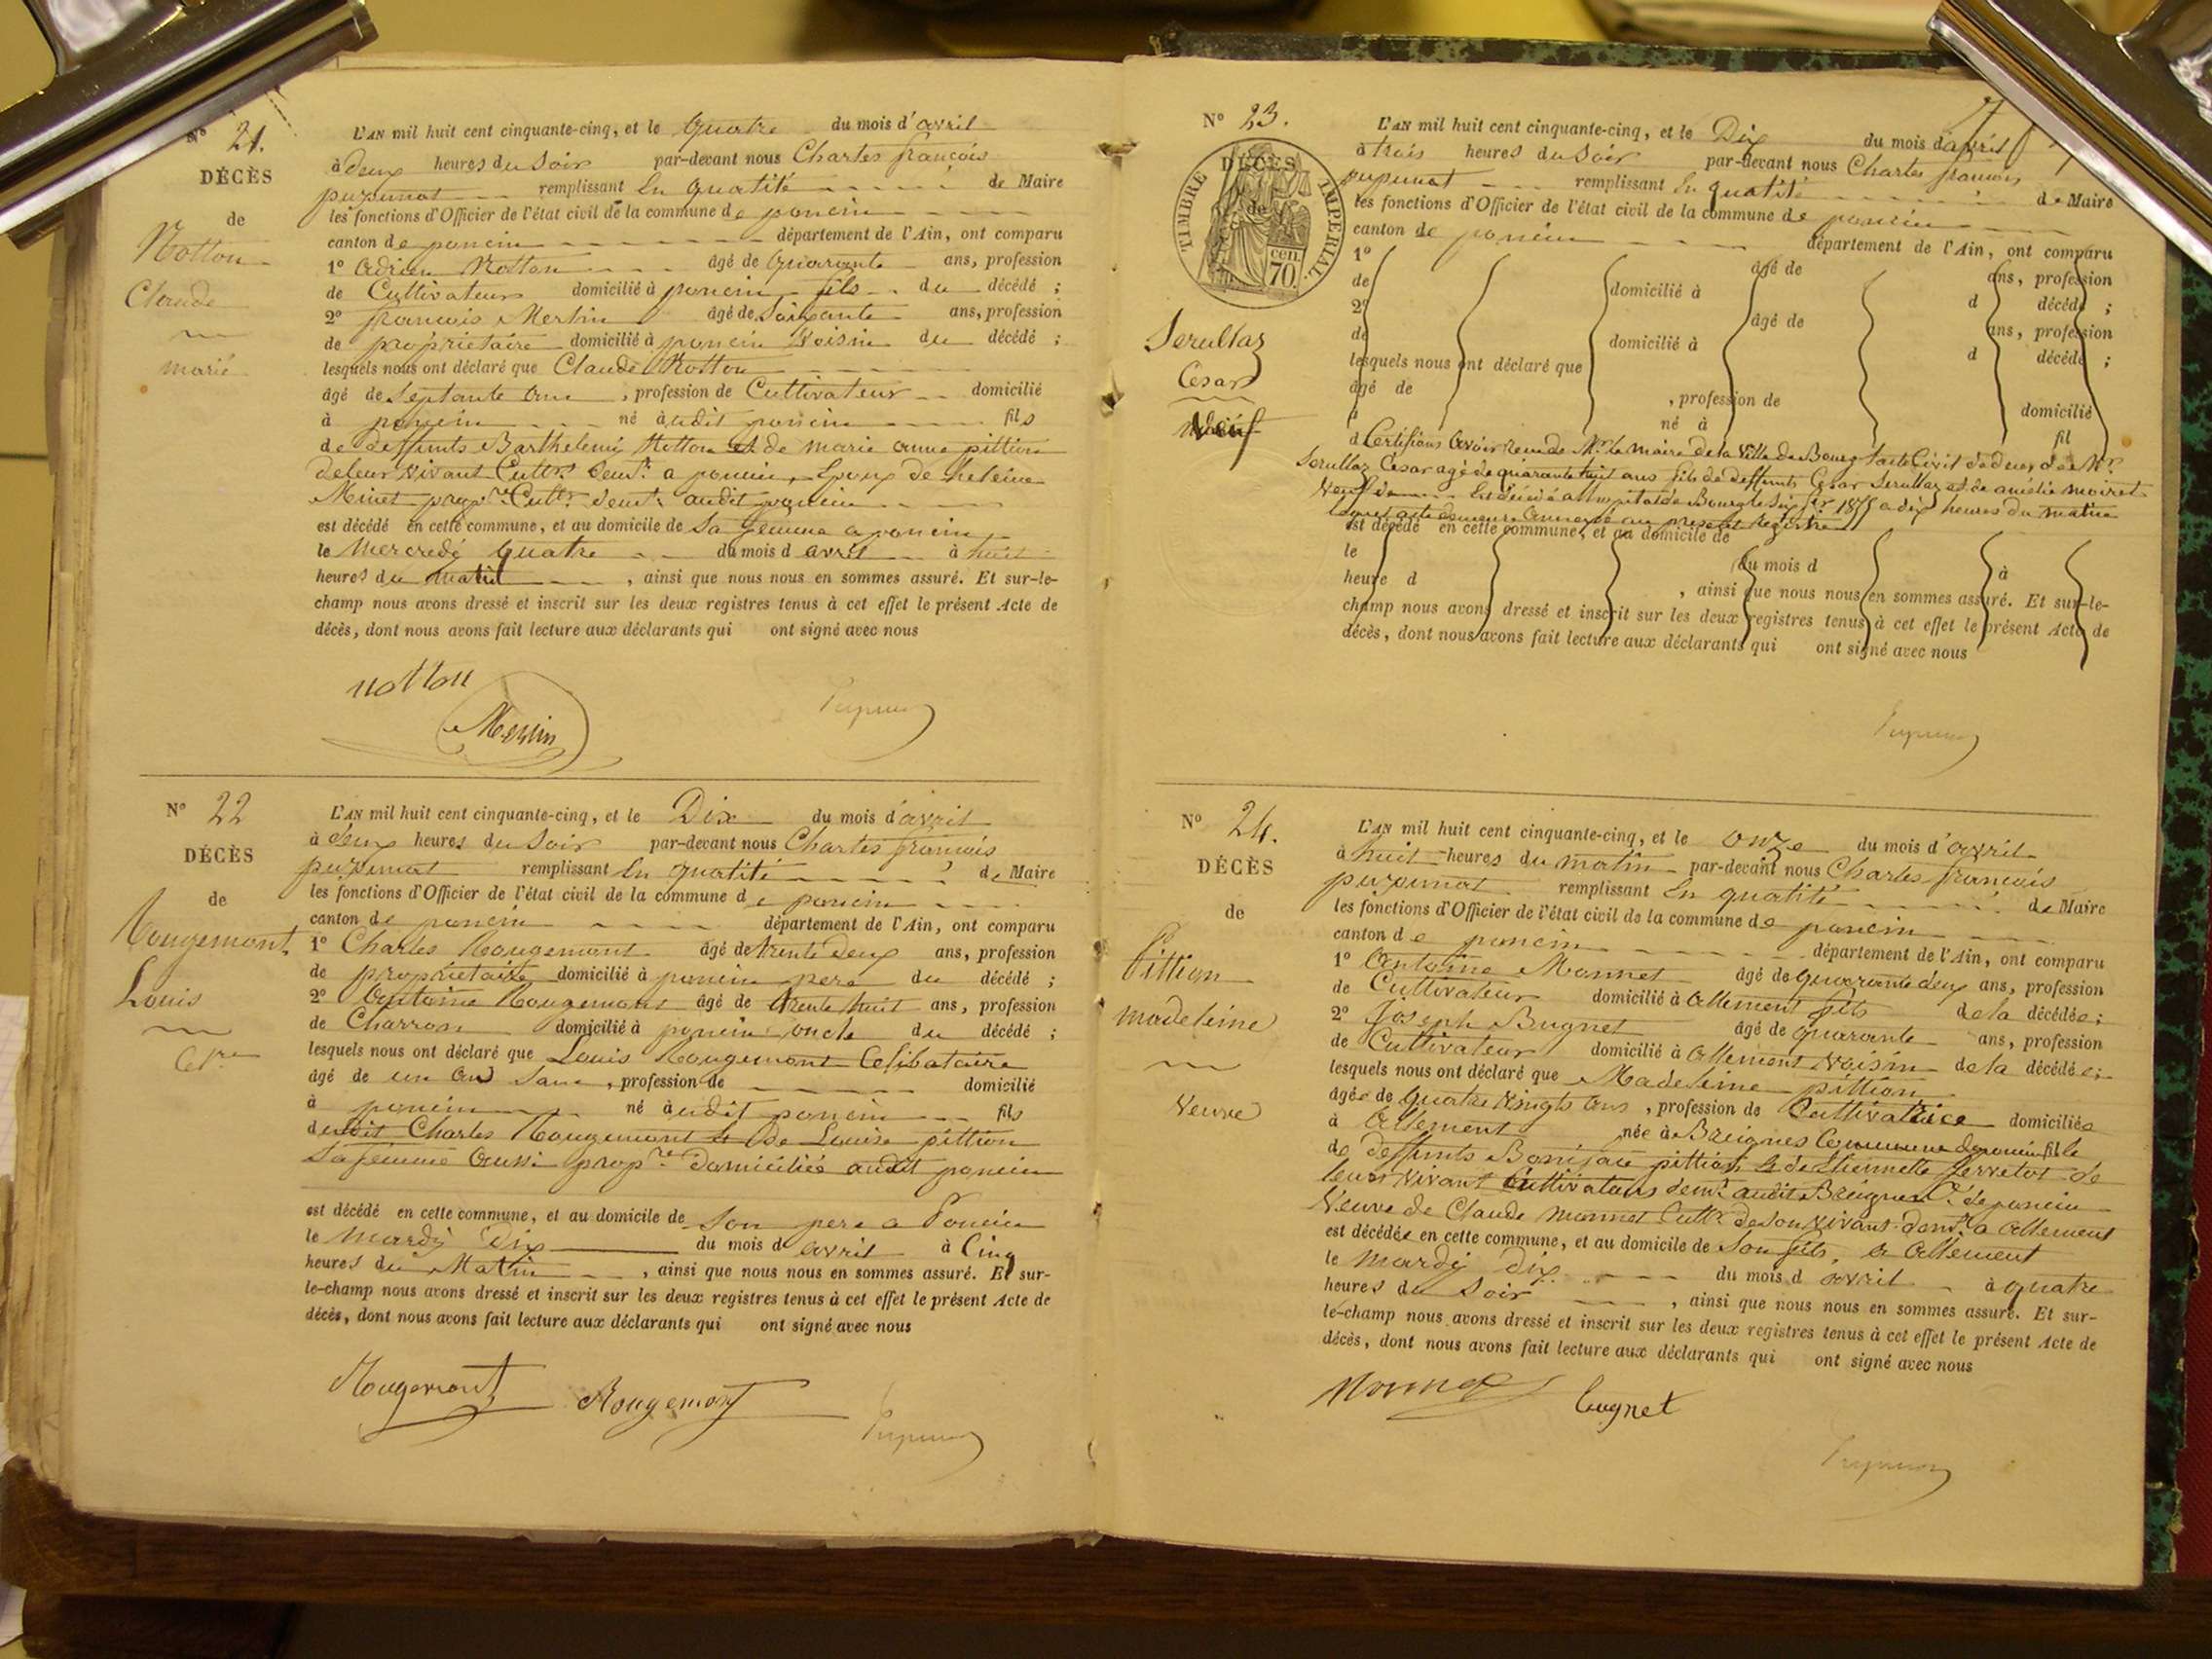 N° 21.
DÉCÈS
de
Notton
Claude
marié
L'AN mil huit cent cinquante-cinq, et le quatre du mois d'avril
à deux heures du Soir par-devant nous Charles françois
remplissant En qualité de Maire
les fonctions d'Officier de l'état civil de la commune de poncin
canton de poncin département de l'Ain, ont comparu
1° Adrien Notton âgé de quarante ans, profession
de Cultivateur domicilié à poncin fils du décédé ;
2° françois Merlin âgé de Soixante ans, profession
de propriétaire domicilié à poncin Voisin du décédé ;
lesquels nous ont déclaré que Claude Notton
âgé de Septante ans, profession de Cultivateur domicilié
à poncin né audit poncin fils
de deffunts Barthelemi Notton et de marie anne pittion
de leur vivant Cultrs demt a poncin, Epoux de heleine
Minet propre Cultr demt audit poncin
est décédé en cette commune, et au domicile de Sa femme a poncin
le Mercredi quatre du mois d avril à huit
heures du matin, ainsi que nous nous en sommes assuré. Et sur-le-
champ nous avons dressé et inscrit sur les deux registres tenus à cet effet le présent Acte de
décès, dont nous avons fait lecture aux déclarants qui ont signé avec nous
notton
Merlin
N° 22
DÉCÈS
de
Rougemont
Louis
Celre
L'AN mil huit cent cinquante-cinq, et le Dix du mois d'avril
à deux heures du Soir par-devant nous Charles françois
remplissant En qualité de Maire
les fonctions d'Officier de l'état civil de la commune de poncin
canton de poncin département de l'Ain, ont comparu
1° Charles Rougemont âgé de trente deux ans, profession
de propriétaire domicilié à poncin pere du décédé ;
2° Antoine Rougemont âgé de trente huit ans, profession
de Charron domicilié à poncin oncle du décédé ;
lesquels nous ont déclaré que Louis Rougemont Celibataire
âgé de un an, profession de domicilié
à poncin né audit poncin fils
dudit Charles Rougemont et De Louise pittion
Sa femme aussi propre domiciliés audit poncin
est décédé en cette commune, et au domicile de Son pere a Poncin
le mardi Dix du mois d avril à Cinq
heures du Matin, ainsi que nous nous en sommes assuré. Et sur-
le-champ nous avons dressé et inscrit sur les deux registres tenus à cet effet le présent Acte de
décès, dont nous avons fait lecture aux déclarants qui ont signé avec nous
Rougemont Rougemont
N° 23.
TIMBRE IMPÉRIAL
cen. 70.
DÉCÈS
de
Serullaz
Cesar
L'AN mil huit cent cinquante-cinq, et le Dix du mois d'avril
à trois heures du Soir par-devant nous Charles françois
remplissant En qualité de Maire
les fonctions d'Officier de l'état civil de la commune de poncin
canton de poncin département de l'Ain, ont comparu
1° âgé de ans, profession
de domicilié à d décédé ;
2° âgé de ans, profession
de domicilié à d décédé ;
lesquels nous ont déclaré que
âgé de , profession de domicilié
à né à fil
d Certifions avoir recu de Mr le maire de la Ville de Bourg l'acte Civil de deces de Mr
Serullaz Cesar agé de quarante huit ans fils de deffunts Cesar Serullaz et de amélie moiret
Veuf de Et décédé a l'hopital de Bourg le Six fer 1855 a dix heures du matin
lequel acte demeure annexé au présent Registre
est décédé en cette commune, et au domicile de
le du mois d à
heure d , ainsi que nous nous en sommes assuré. Et sur-le-
champ nous avons dressé et inscrit sur les deux registres tenus à cet effet le présent Acte de
décès, dont nous avons fait lecture aux déclarants qui ont signé avec nous
N° 24.
DÉCÈS
de
Pittion
madeleine
Veuve
L'AN mil huit cent cinquante-cinq, et le onze du mois d'avril
à huit heures du matin par-devant nous Charles françois
remplissant En qualité de Maire
les fonctions d'Officier de l'état civil de la commune de poncin
canton de poncin département de l'Ain, ont comparu
1° Antoine Monnet âgé de quarante deux ans, profession
de Cultivateur domicilié à Allement fils de la décédée ;
2° Joseph Bugnet âgé de quarante ans, profession
de Cultivateur domicilié à Allement Voisin de la décédée ;
lesquels nous ont déclaré que Madeleine pittion
âgée de quatre Vingts ans, profession de Cultivatrice domiciliée
à Allement née à Breignes Commune de poncin fille
de deffunts Boniface pittion et de Etiennette de
leur vivant Cultivateurs demt audit Breignes Cne de poncin
Veuve de Claude monnet Cultr de son vivant demt a Allement
est décédée en cette commune, et au domicile de Son fils, a Allement
le mardi dix du mois d avril à quatre
heures du Soir, ainsi que nous nous en sommes assuré. Et sur-
le-champ nous avons dressé et inscrit sur les deux registres tenus à cet effet le présent Acte de
décès, dont nous avons fait lecture aux déclarants qui ont signé avec nous
Monnet bugnet